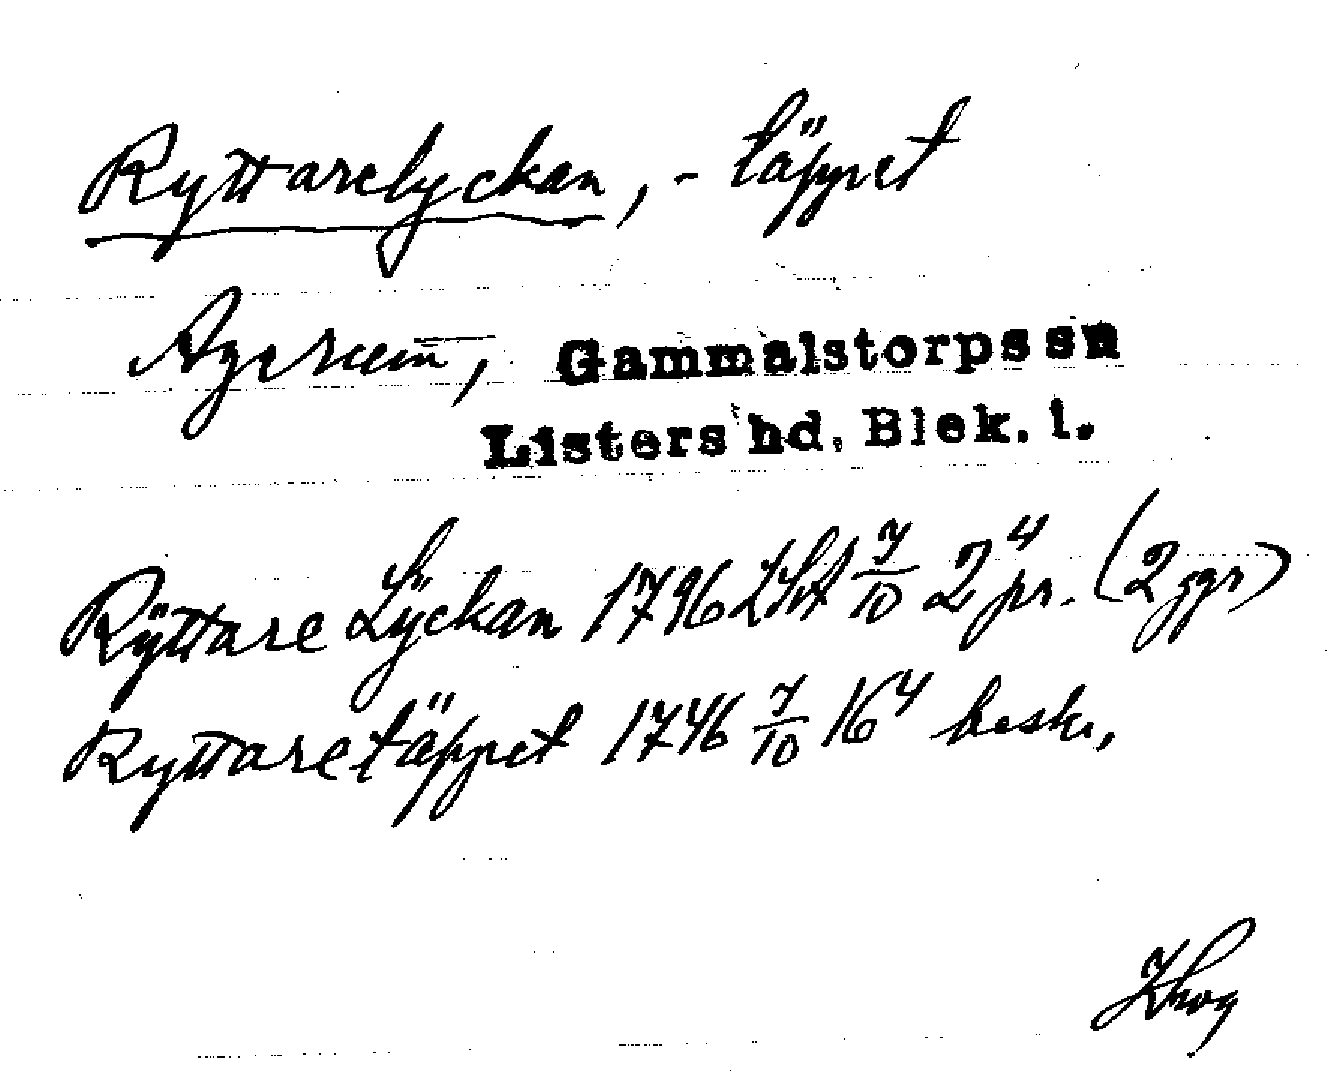 Ryttarelyckan, - täppet
Agerum, Gammalstorps sn
Listers hd, Blek. l.
Rÿttare Lÿckan 1796 LSA 7/10 2⁴ pr. (2 ggr)
Ryttaretäppet 1746 7/10 16⁴ beskr,